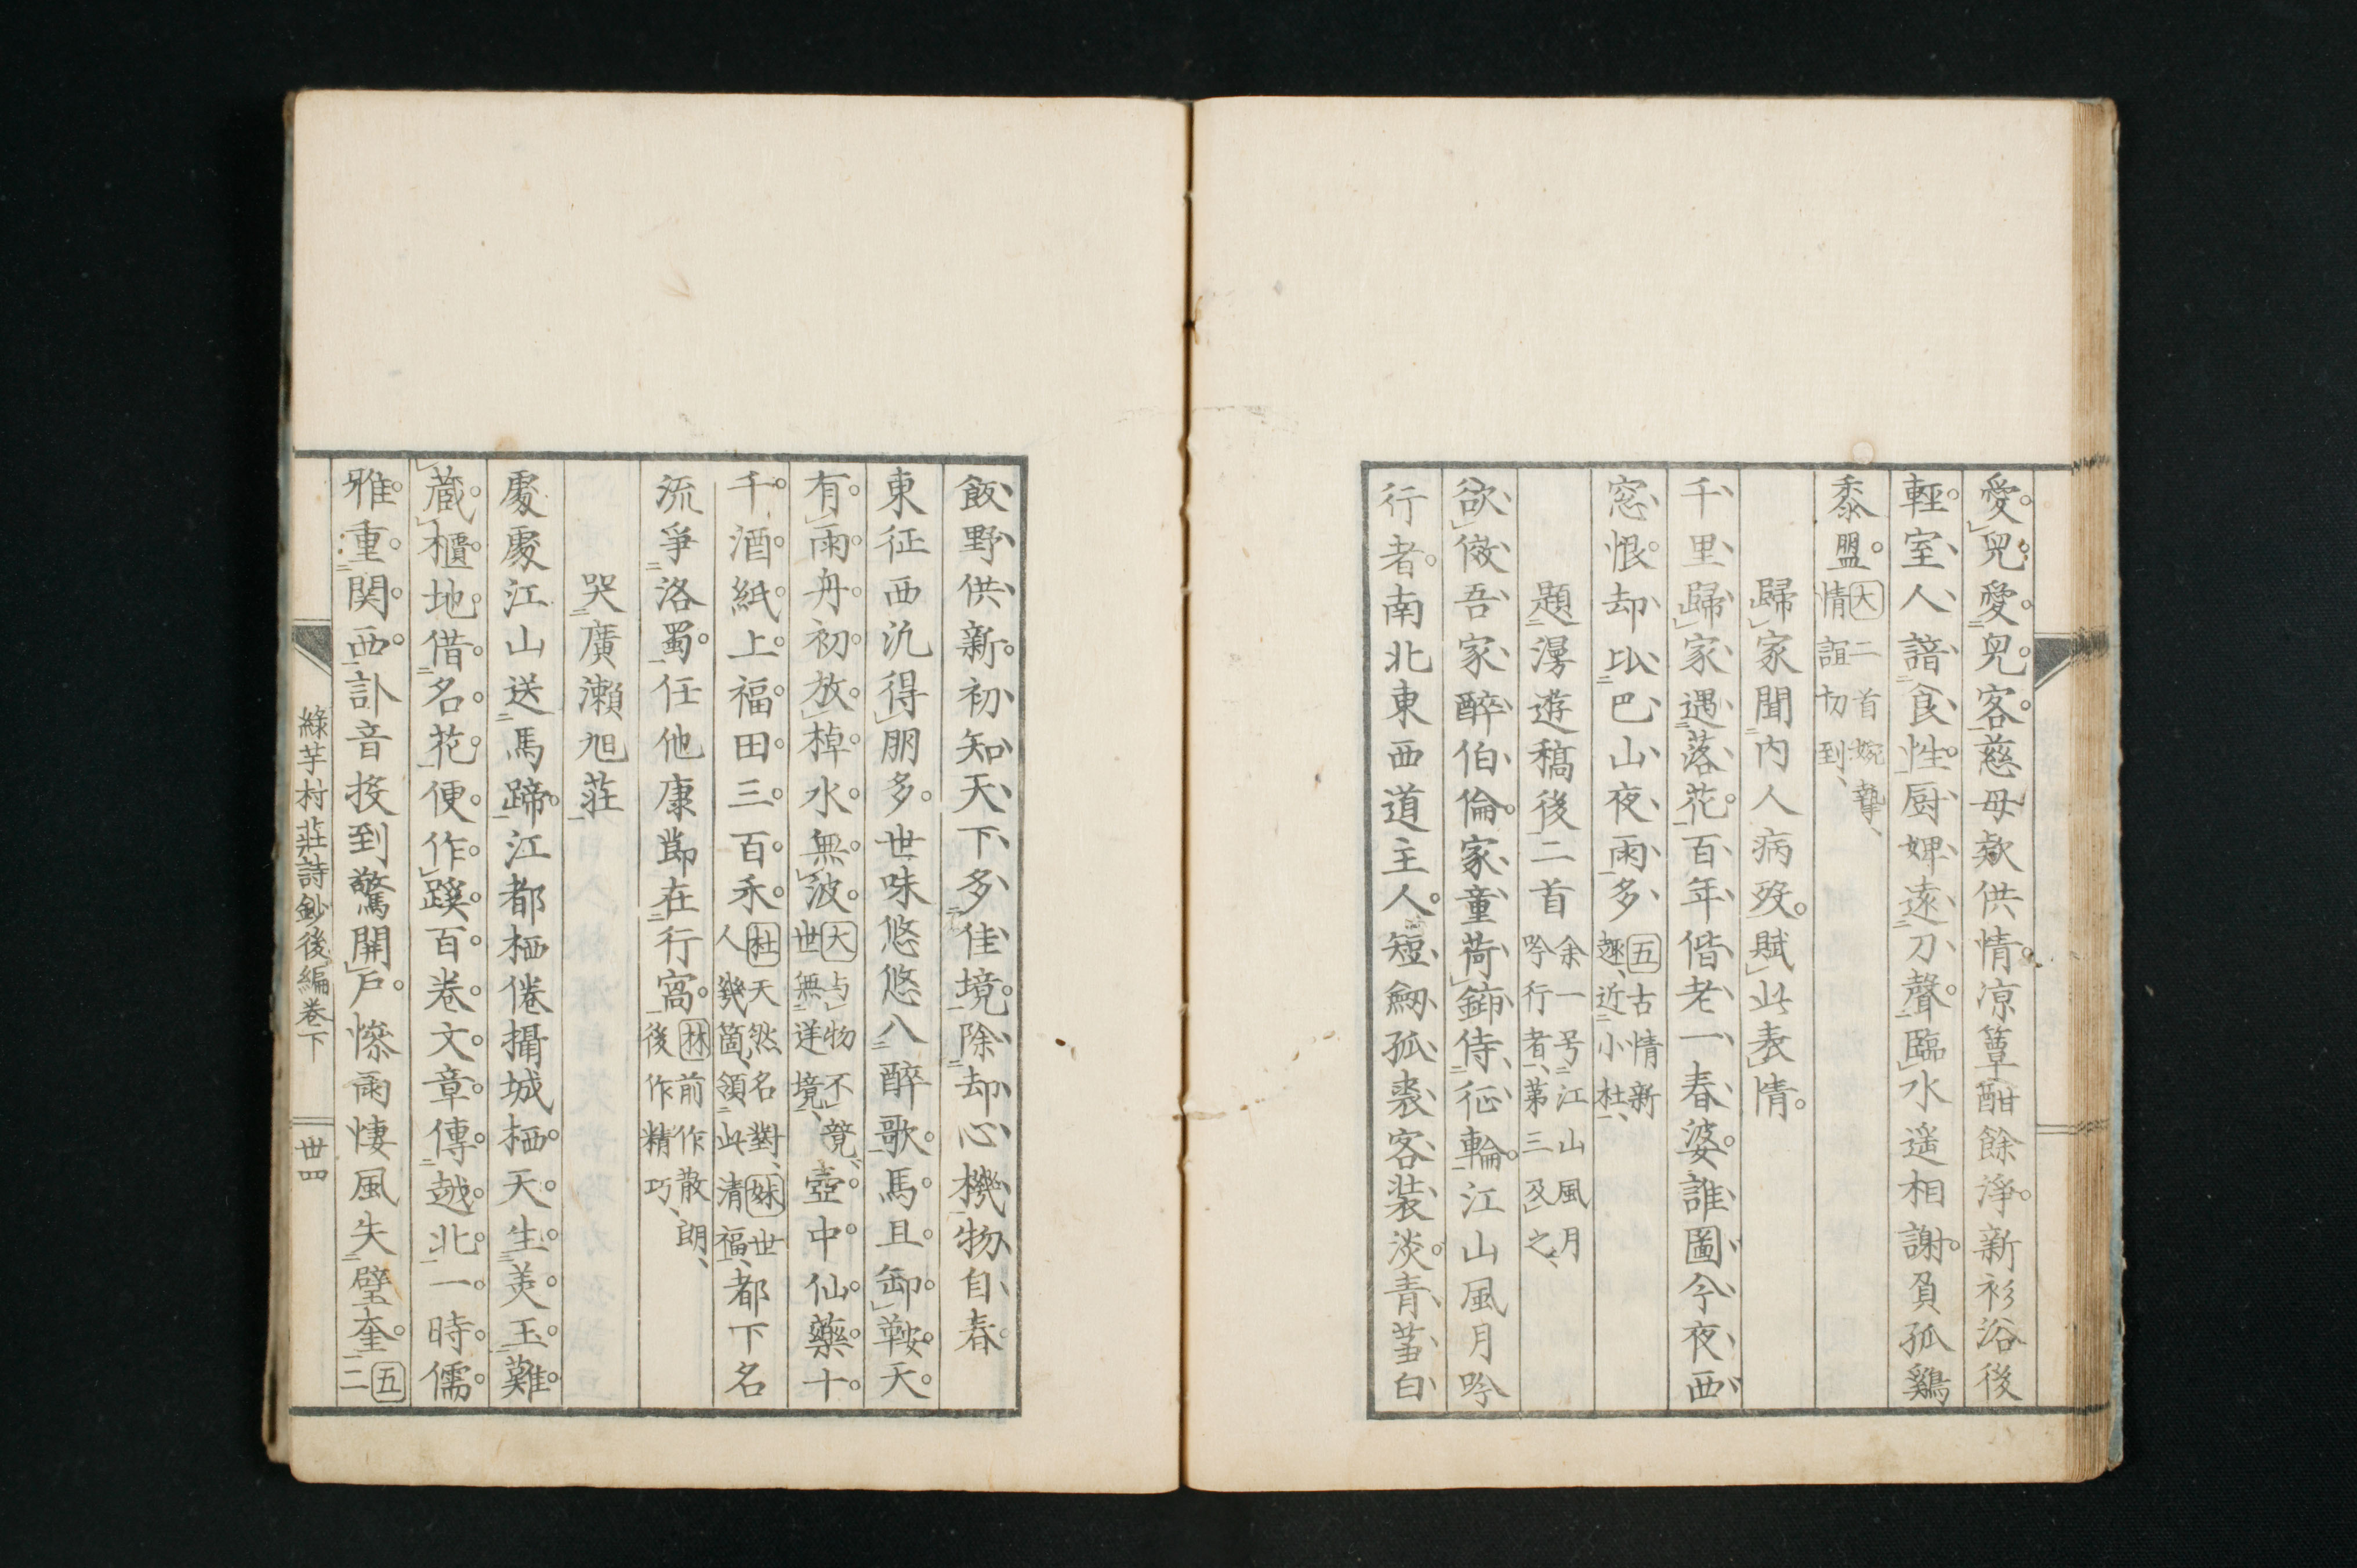 愛兒愛兒客慈母欵供情凉簟酣餘淨新衫浴後
輕室人諳食性厨婢遠刀聲臨水遥相謝負孤鷄
黍盟大二首婉摯、情誼切到、
歸家聞内人病歿賦此表情
千里歸家遇落花百年偕老一春婆誰圖今夜西
窓恨却比巴山夜雨多五古情新趣、近小杜、
題漫遊稿後二首余一号江山風月吟行者、第三及之、
欲倣吾家醉伯倫家童荷鍤侍征輪江山風月吟
行者南北東西道主人短劔孤裘客装淡青蒭白
飯野供新初知天下多佳境除却心機物自春
東征西氿得朋多世味悠悠八醉歌馬且卸鞍天
有雨舟初放棹水無波大与物不競、世無逆境、壺中仙藥十
千酒紙上福田三百禾杜天然名對、妹世人幾箇、領此清福、都下名
流爭洛蜀任他康節在行窩林前作散朗、後作精巧、
哭廣瀨旭莊
處處江山送馬蹄江都栖倦攝城栖天生美玉難
藏櫃地借名花便作蹊百卷文章傳越北一時儒
雅重関西訃音投到驚開戶慘雨悽風失璧奎五二
綠芋村莊詩鈔後編卷下
丗四